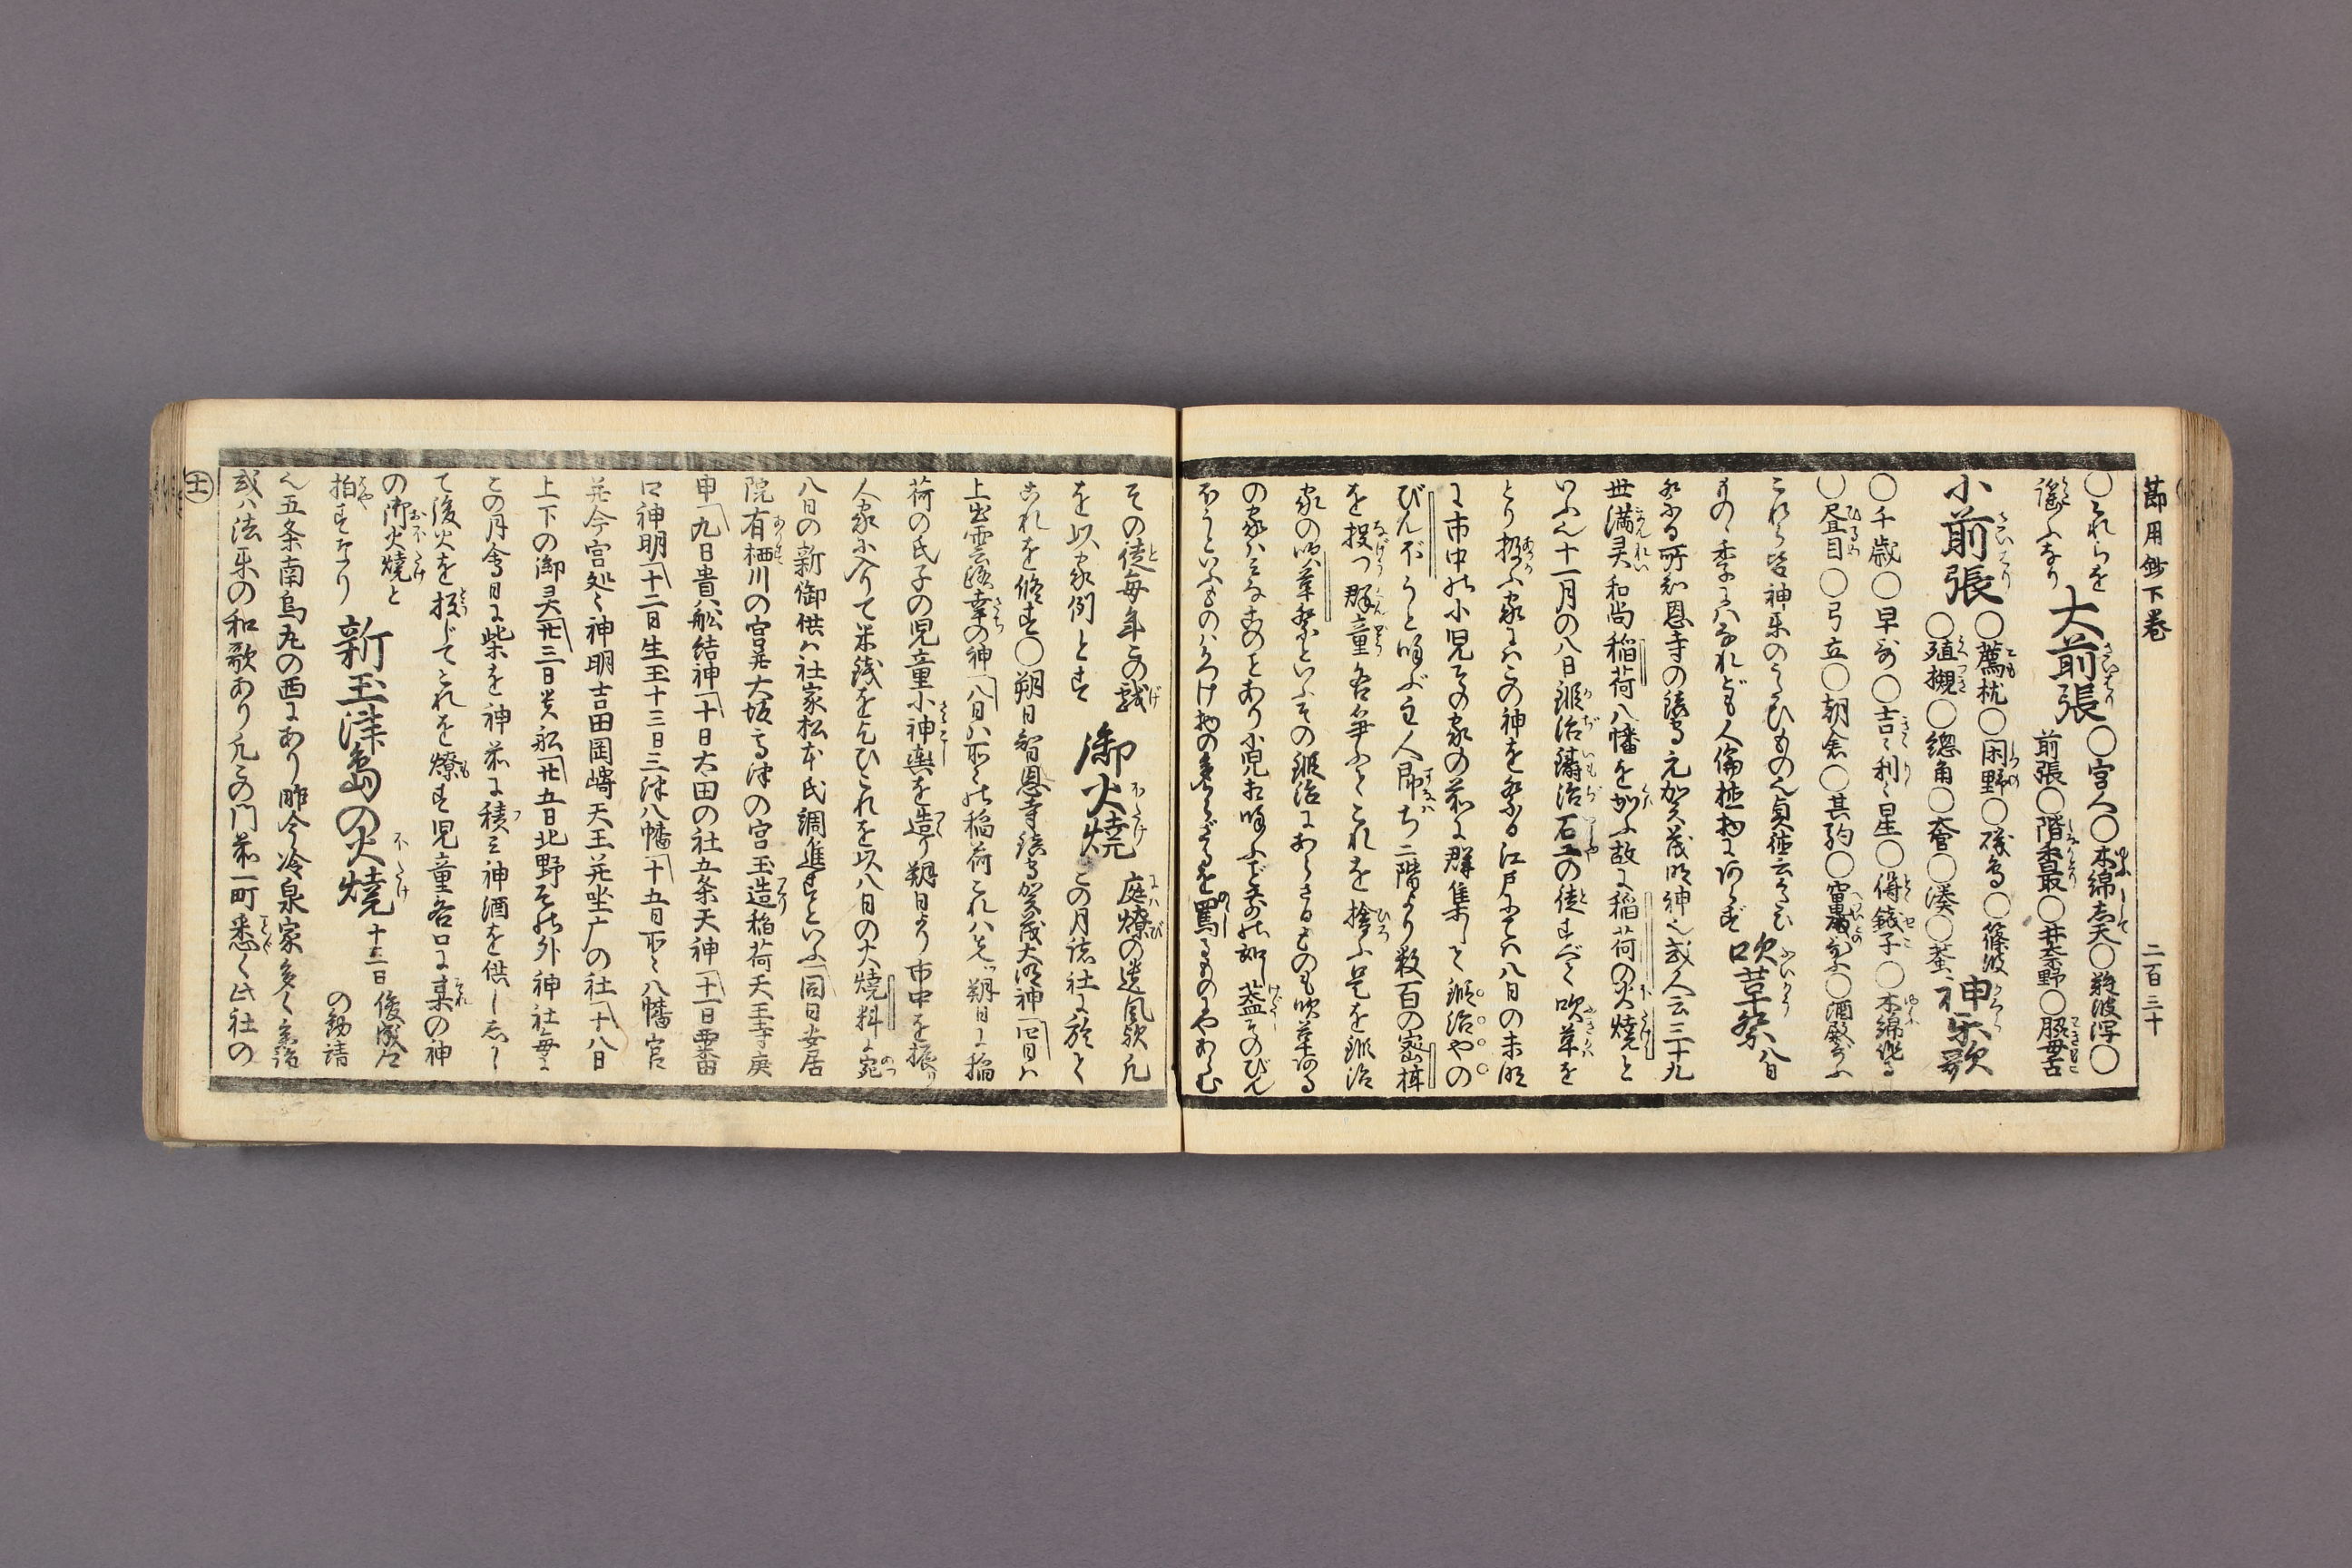 節用鈔下巻
二百三十
○これらを
謡ふなり
大前張
○宮人○木綿志天○難波潟○
前張○階香取○井奈野○脇母古
小前張
○薦枕○閑野○磯等○篠波
○殖槻○総角○大宮○湊○蛬
神楽歌
○千歳○早歌○吉々利々星○得銭子○木綿作る
○昼目○弓立○朝倉○其駒○竈殿歌○酒殿歌
これら皆神楽のうたひもの也貞徳云うたひ
もの季にハなれども人倫植物にハあらず
吹革祭
八日
祭る所知恩寺の鎮守元加茂明神也或人云三十九
世満霊和尚稲荷八幡を加ふ故に稲荷の火焼と
いふ也十一月の八日鍛冶鋳冶石工の徒すべて吹革を
とり扱ふ家にハこの神を祭る江戸にてハ八日の未明
に市中の小児その家の前に群集して鍛冶やの
びんぼうと呼ぶ主人即ち二階より数百の蜜柑
を投つ群童各争ふてこれを捨ふ是を鍛冶
家の吹革祭といふその鍛冶にあらざるものも吹革ある
の家ハみなこのことあり小児の呼ぶ声の如し蓋そのびん
ぼうといふものハかつけ物の多からざるを罵るものゝやわらむ
その徒毎年この戯
を以家例とす
御火焼
庭燎の遺風歟凡
この月諸社に於て
これを修す○朔日智恩寺鎮守賀茂大明神四日ハ
上出雲路幸の神八日ハ所々の稲荷これハ先朔日に稲
荷の氏子の児童小神輿を造り朔日より市中を振り
人家に入りて米銭を乞ひこれを以八日の火焼料に宛
八日の新御供ハ社家松本氏調進すといふ同日安居
院有栖川の宮并大坂高津の宮玉造稲荷天王寺庚
申九日貴舩結神十日太田の社五条天神十一日西番
口神明十二日生玉十三日三津八幡十五日所々八幡宮
并今宮処々神明吉田岡崎天王并坐广の社十八日
上下の御霊廿三日貴舩廿五日北野その外神社毎に
この月会日に柴を神前に積ミ神酒を供し而し
て後火を投じてこれを燎す児童各口に某の神
の御火焼と
拍すなり
新玉津島の火焼
十三日
俊成卿
の勧請
也五条南烏丸の西にあり昨今冷泉家多く参詣
或ハ法楽の和歌あり凡この門前一町悉く此社の
土